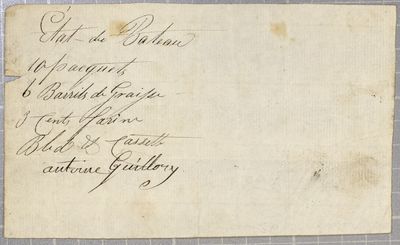 État de Bateau
10 pacquets
6 Barrils de Graisse
3 Cents farine
Bled & Cassetts
antoine Guillory